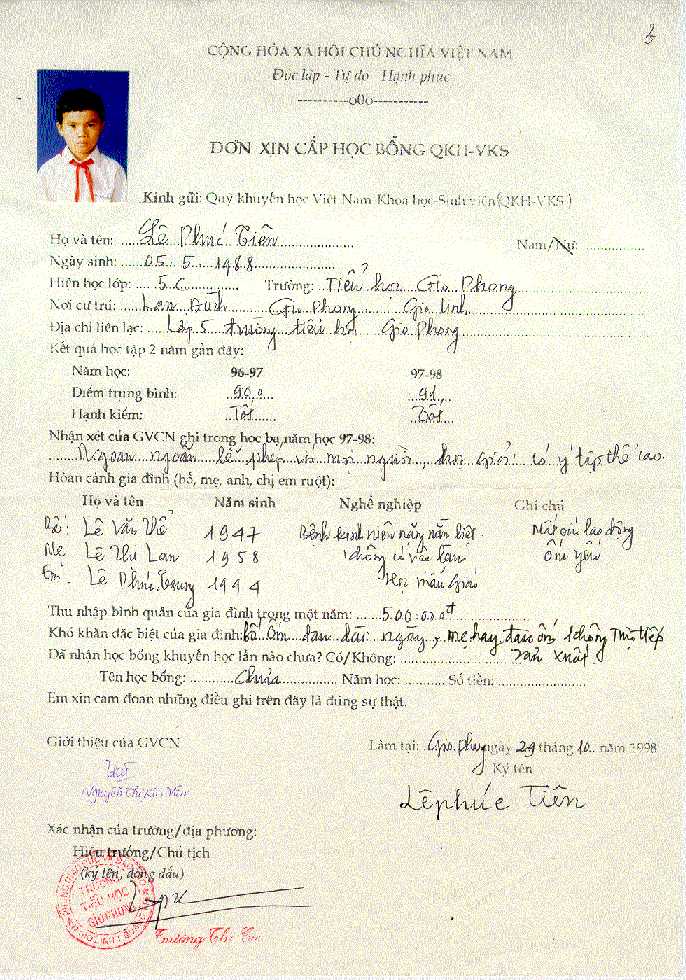 CỘNG HÒA XÃ HỘI CHỦ NGHĨA VIỆT NAM
Độc lập - Tự do - Hạnh phúc
----------o0o-----------
ĐƠN XIN CẤP HỌC BỔNG QKH-VKS
Kính gửi: Quỹ khuyến học Việt Nam-Khoa học-Sinh viên (QKH-VKS)
Họ và tên: Lê Phúc Tiên Nam/Nữ:
Ngày sinh: 05 5 1988
Hiện học lớp: 5C Trường: Tiểu học Gio Phong
Nơi cư trú: Lan Đình Gio Phong Gio Linh
Địa chỉ liên lạc: Lớp 5 trường tiểu học Gio Phong
Kết quả học tập 2 năm gần đây:
Năm học: 96-97 97-98
Điểm trung bình:
Hạnh kiểm: Tốt Tốt
Nhận xét của GVCN ghi trong học bạ năm học 97-98:
Ngoan ngoãn lễ phép với mọi người, học giỏi có ý tập thể cao
Hoàn cảnh gia đình (bố, mẹ, anh, chị em ruột):
Họ và tên Năm sinh Nghề nghiệp Ghi chú
Bố: Lê Văn 1947 Bệnh kinh niên nặng nằm liệt Mất sức lao động
Mẹ Lê Thị Lan 1958 không có việc làm ốm yếu
Em: Lê Phúc 1994 Học mẫu giáo
Thu nhập bình quân của gia đình trong một năm: 500.000đ
Khó khăn đặc biệt của gia đình: bố ốm đau dài ngày, mẹ hay đau ốm không trực tiếp
sản xuất
Đã nhận học bổng khuyến học lần nào chưa? Có/Không:
Tên học bổng: Chưa Năm học: Số tiền:
Em xin cam đoan những điều ghi trên đây là đúng sự thật.
Giới thiệu của GVCN
Làm tại: Gio Phong ngày 29 tháng 10 năm 1998
Ký tên
Nguyễn Thị
Lê phúc Tiên
Xác nhận của trường/địa phương:
Hiệu trưởng/Chủ tịch
(ký tên, đóng dấu)
TRƯỜNG
TIỂU HỌC
GIO PHONG
Trương Thị